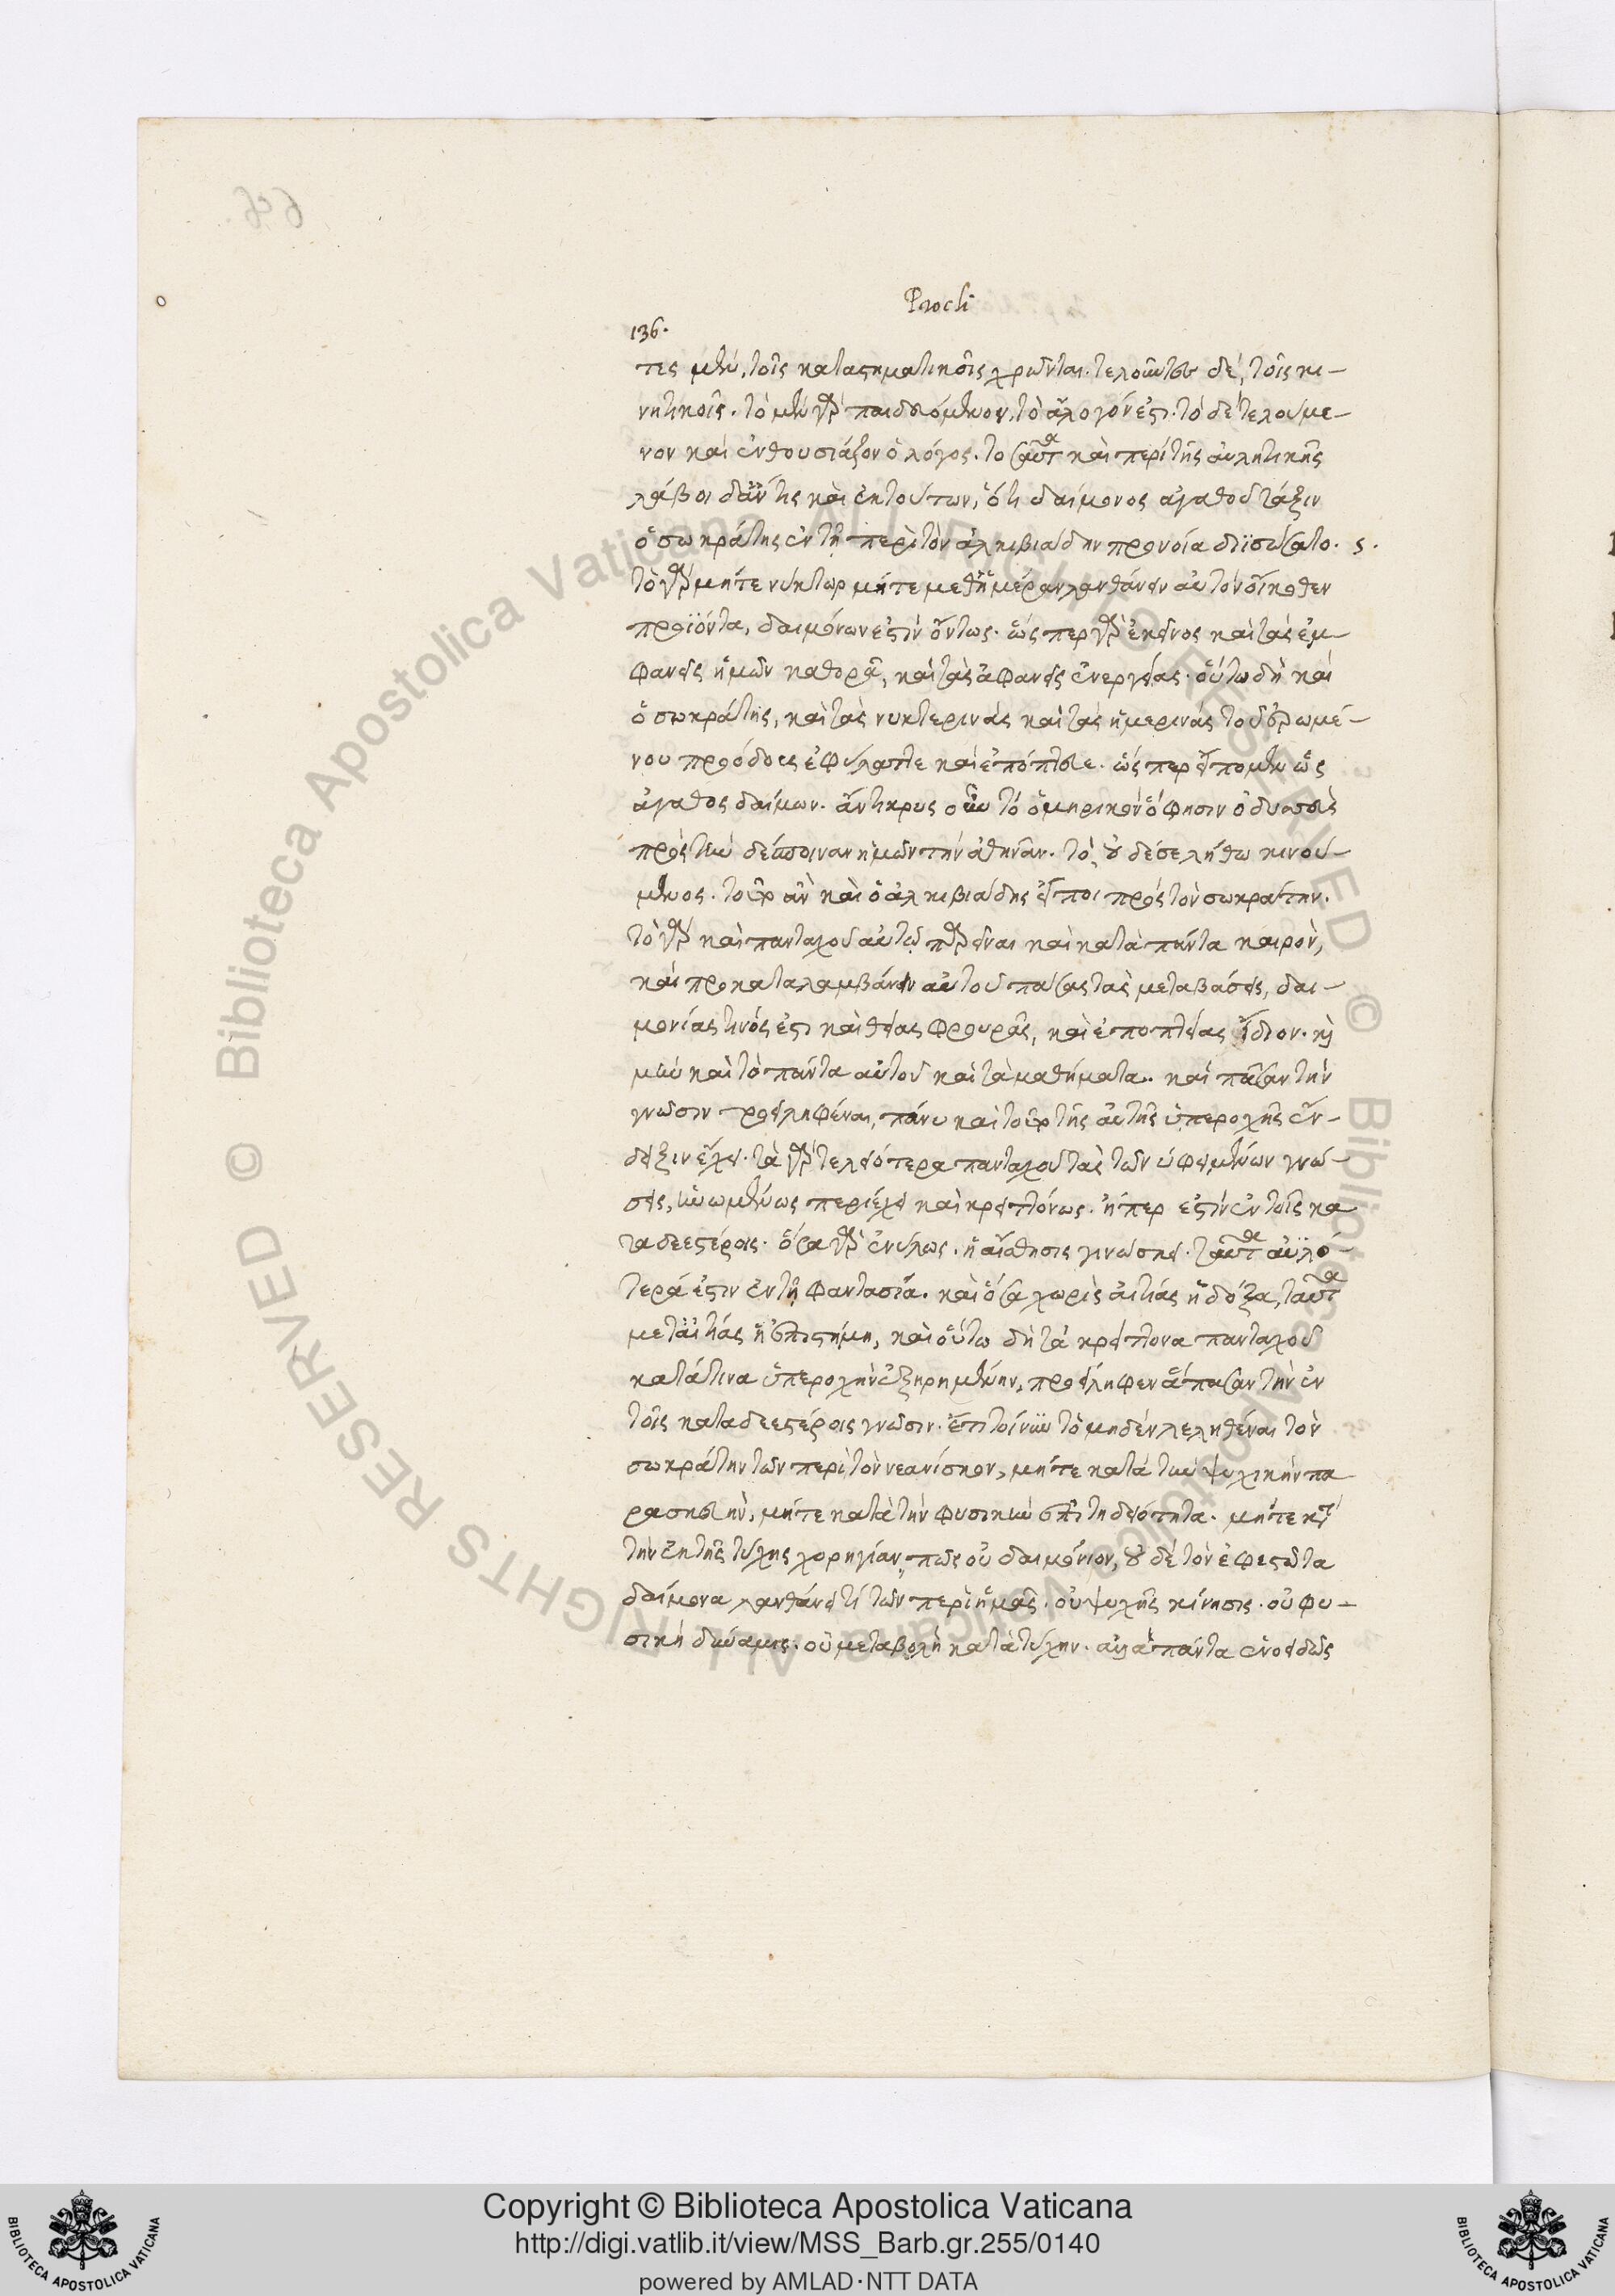 Procli
136.
τες μὲν, τοῖς καταστηματικοῖς χρῶνται. τελοῦντες δὲ, τοῖς κι-
νητικοῖς. τὸ μὲν γὰρ παιδευόμενον, τὸ ἄλογόν ἐστι. τὸ δὲ τελούμε-
νον καὶ ἐνθουσιάζον ὁ λόγος. ταῦτα καὶ περὶ τῆς αὐλητικῆς
λάβοι δ' ἄν τις καὶ ἐκ τούτων, ὅτι δαίμονος ἀγαθοῦ τάξιν
ὁ σωκράτης ἐν τῇ περὶ τὸν ἀλκιβιάδην προνοία διϊσώσατο. ς.
τὸ γὰρ μήτε νύκτωρ μήτε μεθ' ἡμέραν λανθάνειν αὐτὸν οἴκοθεν
προϊόντα, δαιμόνων ἐστὶν ὄντως. ὥς περ γὰρ ἐκεῖνος καὶ τὰς ἐμ-
φανεῖς ἡμῶν καθορᾷ, καὶ τὰς ἀφανεῖς ἐνεργείας. οὕτω δὴ καὶ
ὁ σωκράτης, καὶ τὰς νυκτερινὰς καὶ τὰς ἡμερινὰς τοῦ ἐρωμέ-
νου προόδους ἐφύλαττε καὶ ἐπόπτευε. ὥς περ εἴπομεν ὡς
ἀγαθος δαίμων. ἄντικρυς οὖν τὸ ὁμηρικὸν ὅ φησιν ὀδυσσεὺς
πρὸς τὴν δέσποιναν ἡμῶν τὴν ἀθηνᾶν. τὸ, οὐδέ σε λήθω κινού-
μενος. τοῦτο ἂν καὶ ὁ ἀλκιβιάδης εἴποι πρὸς τὸν σωκράτην.
τὸ γὰρ καὶ πανταχοῦ αὐτῷ παρεῖναι καὶ κατὰ πάντα καιρὸν,
καὶ προκαταλαμβάνειν αὐτοῦ πάσας τὰς μεταβάσεις, δαι-
μονίας τινός ἐστι καὶ θείας φρουρᾶς, καὶ ἐποπτείας ἴδιον. καὶ
μὴν καὶ τὸ πάντα αὐτοῦ καὶ τὰ μαθήματα.. καὶ πᾶσαν τὴν
γνῶσιν προειληφέναι, πάνυ καὶ τοῦτο τῆς αὐτῆς ὑπεροχῆς ἔν-
δειξιν ἔχει. τὰ γὰρ τελειότερα πανταχοῦ τὰς τῶν ὑφειμένων γνώ-
σεις, ἡνωμένως περιέχει καὶ κρειττόνως. ἤπερ ἐστὶν ἐν τοῖς κα
ταδεεστέροις. ὅσα γὰρ ἐνύλως. ἡ αἴσθησις γινώσκει. ταῦτα ἀϋλό-
τερά ἐστιν ἐν τῇ φαντασίᾳ. καὶ ὅσα χωρὶς αἰτίας ἡ δόξα, ταῦτα
μετ' αἰτίας ἡ ἐπιστήμη, καὶ οὕτω δὴ τὰ κρείττονα πανταχοῦ
κατά τινα ὑπεροχὴν ἐξῃρημένην, προείληφεν ἅπασαν τὴν ἐν
τοῖς καταδεεστέροις γνῶσιν. ἔτι τοίνυν τὸ μηδὲν λεληθέναι τὸν
σωκράτην τῶν περὶ τὸν νεανίσκον, μήτε κατὰ τὴν ψυχικὴν πα
ρασκευὴν, μήτε κατὰ τὴν φυσικὴν ἐπιτηδειότητα. μήτε κατὰ
τὴν ἐκ τῆς τύχης χορηγίαν, πῶς οὐ δαιμόνιον, οὐδὲ τὸν ἐφεστῶτα
δαίμονα λανθάνει τί τῶν περὶ ἡμᾶς. οὐ ψυχῆς κίνησις. οὐ φυ-
σικὴ δύναμις. οὐ μεταβολὴ κατὰ τύχην. ἀλλὰ πάντα ἑνοειδῶς
Copyright © Biblioteca Apostolica Vaticana
http://digi.vatlib.it/view/MSS_Barb.gr.255/0140
powered by AMLAD·NTT DATA